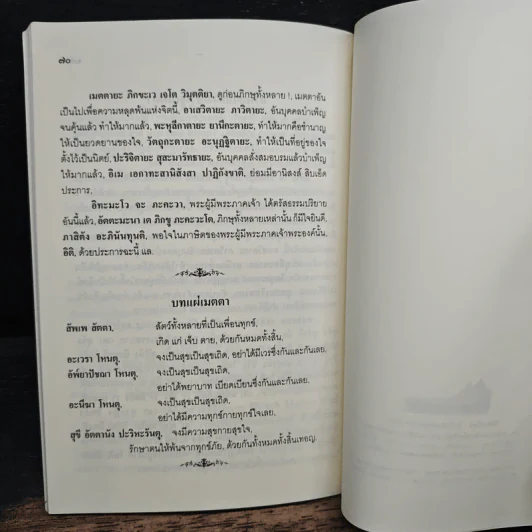 ๗๐
เมตตายะ ภิกขะเว เจโต วิมุตติยา, ดูก่อนภิกษุทั้งหลาย !, เมตตาอัน
เป็นไปเพื่อความหลุดพ้นแห่งจิตนี้, อาเสวิตายะ ภาวิตายะ, อันบุคคลบำเพ็ญ
จนคุ้นแล้ว ทำให้มากแล้ว, พะหุลีกาตายะ ยานีกะตายะ, ทำให้มากคือชำนาญ
ให้เป็นยวดยานของใจ, วัตถุกะตายะ อะนุฏฐิตายะ, ทำให้เป็นที่อยู่ของใจ
ตั้งไว้เป็นนิตย์, ปะริจิตายะ สุสะมารัทธายะ, อันบุคคลสั่งสมอบรมแล้วบำเพ็ญ
ให้มากแล้ว, อิเม เอกาทะสานิสังสา ปาฏิกังขาติ, ย่อมมีอานิสงส์ สิบเอ็ด
ประการ,
อิทะมะโว จะ ภะคะวา, พระผู้มีพระภาคเจ้า ได้ตรัสธรรมปริยาย
อันนี้แล้ว, อัตตะมะนา เต ภิกขู ภะคะวะโต, ภิกษุทั้งหลายเหล่านั้น ก็มีใจยินดี,
ภาสิตัง อะภินันทุนติ, พอใจในภาษิตของพระผู้มีพระภาคเจ้าพระองค์นั้น,
อิติ, ด้วยประการฉะนี้ แล.
บทแผ่เมตตา
สัพเพ สัตตา, สัตว์ทั้งหลายที่เป็นเพื่อนทุกข์,
เกิด แก่ เจ็บ ตาย, ด้วยกันหมดทั้งสิ้น,
อะเวรา โหนตุ, จงเป็นสุขเป็นสุขเถิด, อย่าได้มีเวรซึ่งกันและกันเลย.
อัพ์ยาปัชฌา โหนตุ, จงเป็นสุขเป็นสุขเถิด,
อย่าได้พยาบาท เบียดเบียนซึ่งกันและกันเลย.
อะนีฆา โหนตุ, จงเป็นสุขเป็นสุขเถิด,
อย่าได้มีความทุกข์กายทุกข์ใจเลย.
สุขี อัตตานัง ปะริหะรันตุ, จงมีความสุขกายสุขใจ,
รักษาตนให้พ้นจากทุกข์ภัย, ด้วยกันทั้งหมดทั้งสิ้นเทอญ.